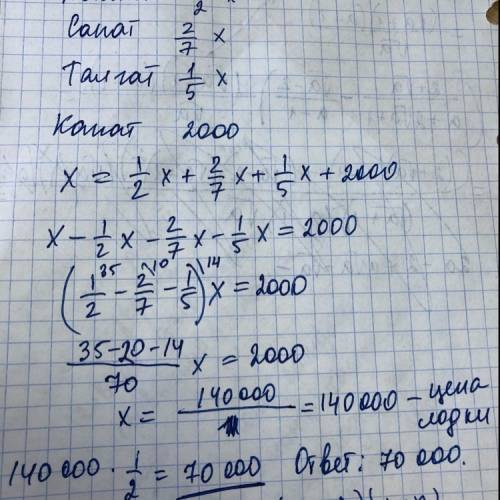 Санат 2/7 x
Талгат 1/5 x
Канат 2000
x = 1/2 x + 2/7 x + 1/5 x + 2000
x - 1/2 x - 2/7 x - 1/5 x = 2000
(1/2 ³⁵ - 2/7 ¹⁰ - 1/5 ¹⁴) x = 2000
35-20-14/70 x = 2000
x = 140 000/1 = 140 000 - цена лодки
140 000 · 1/2 = 70 000 Ответ: 70 000.